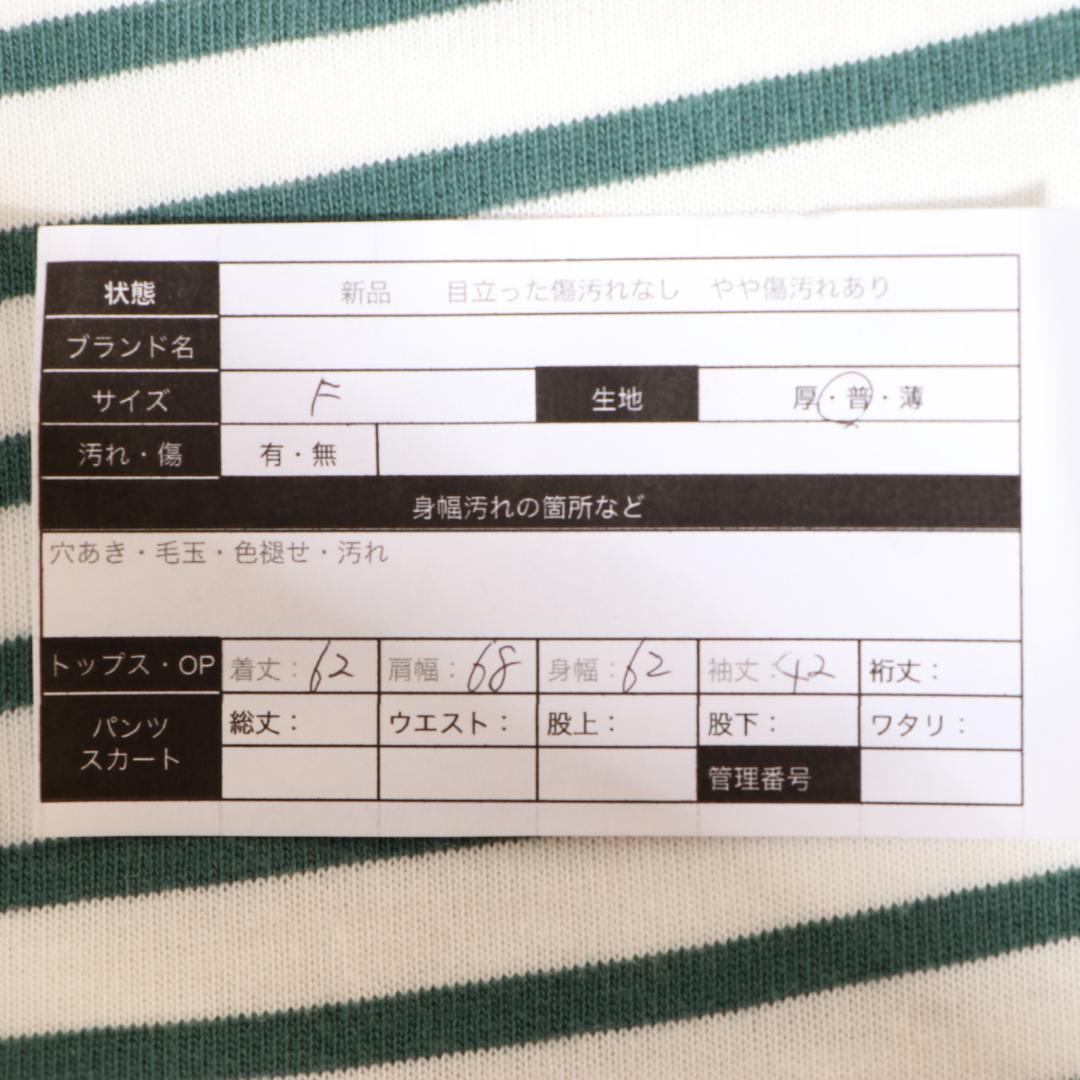 状態 新品 目立った傷汚れなし やや傷汚れあり
ブランド名
サイズ F 生地 厚・普・薄
汚れ・傷 有・無
身幅汚れの箇所など
穴あき・毛玉・色褪せ・汚れ
トップス・OP 着丈：62 肩幅：68 身幅：62 袖丈：42 裄丈：
パンツ スカート 総丈： ウエスト： 股上： 股下： ワタリ：
管理番号